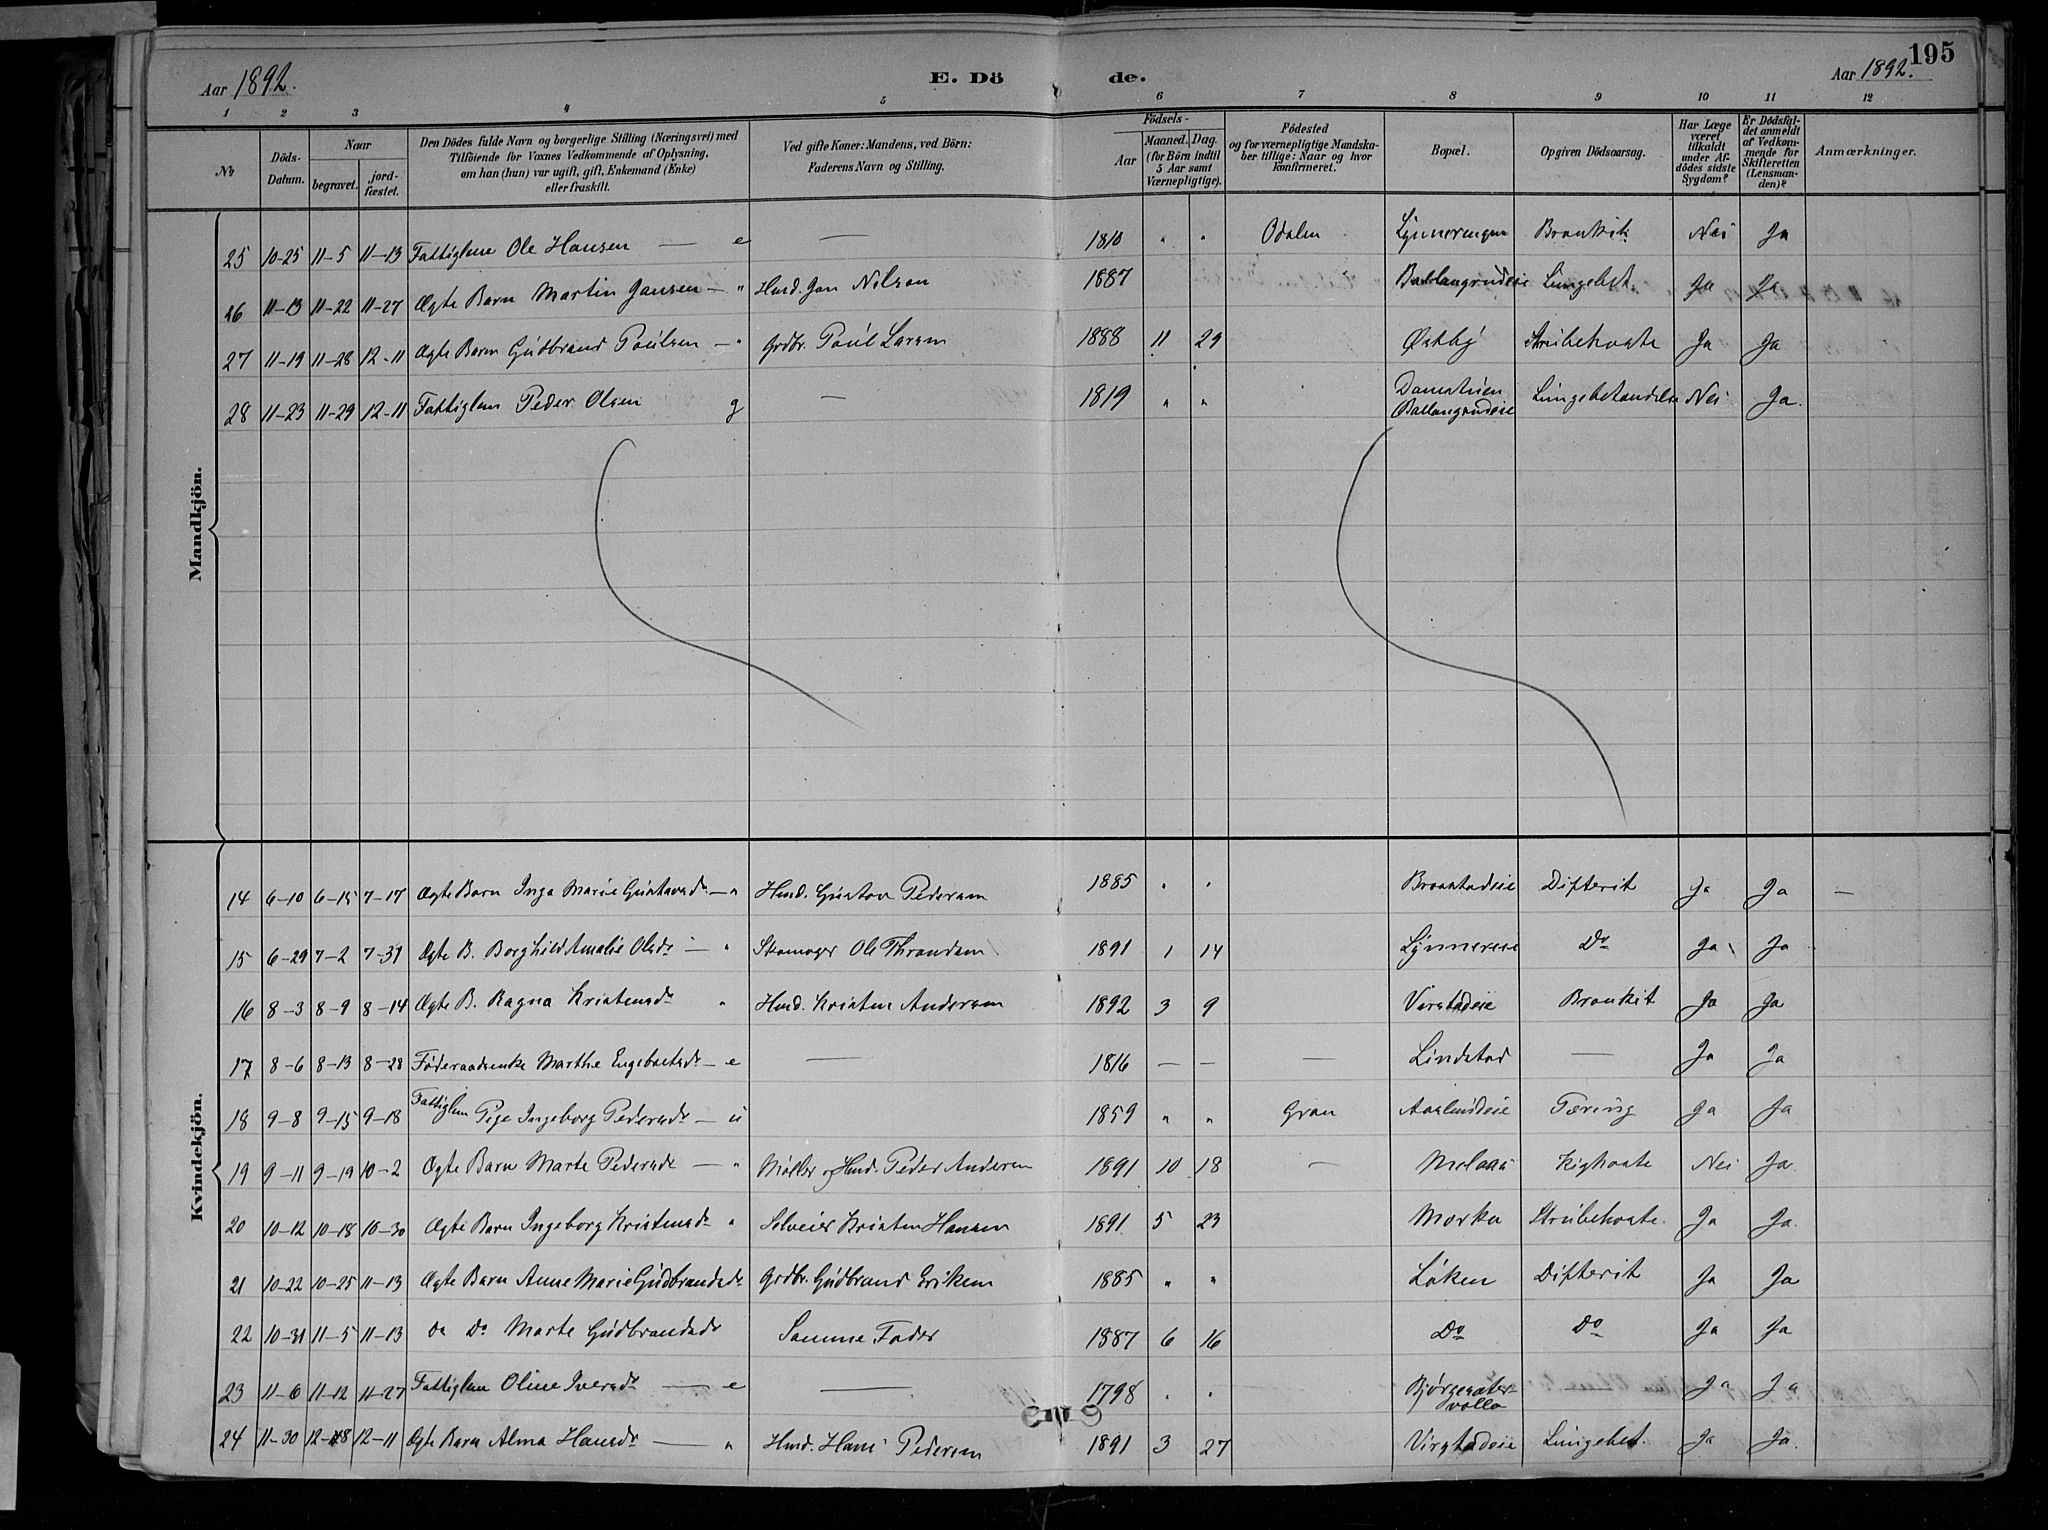 195
Aar 1892. E. Dö de. Aar 1892.
1 2 3 4 5 6 7 8 9 10 11 12
№ Döds-Datum. Naar begravet. jordfæstet. Den Dödes fulde Navn og borgerlige Stilling (Næringsvei) med Tilföiende for Voxnes Vedkommende af Oplysning, om han (hun) var ugift, gift, Enkemand (Enke) eller fraskilt. Ved gifte Koner: Mandens, ved Börn: Faderens Navn og Stilling. Födsels- Aar Maaned. Dag. (for Börn indtil 5 Aar samt Værnepligtige). Födested og for værnepligtige Mandskaber tillige: Naar og hvor konfirmeret. Bopæl. Opgiven Dödsaarsag. Har Læge været tilkaldt under Afdödes sidste Sygdom? Er Dödsfaldet anmeldt af Vedkommende for Skifteretten (Lensmanden)? Anmærkninger.
Mandkjön.
25 10-25 11-5 11-13 Fattiglem Ole Hansen — e — 1810 " " Odalen Lynneringen Bronkit Nei Ja
26 11-13 11-22 11-27 Ægte Barn Martin Jansen — " Husd. Jan Nilsen 1887 Ballangrudeie Lungebet. Ja Ja
27 11-19 11-28 12-11 Ægte Barn Gudbrand Poulsen — " Grdbr. Poul Larsen 1888 11 29 Østby Strubehoste Ja Ja
28 11-23 11-29 12-11 Fattiglem Peder Olsen g — 1819 " " Ballangrudeie Lungebetændelse Nei Ja.
Kvindekjön.
14 6-10 6-15 7-17 Ægte Barn Inga Marie Gustavsdr — " Husd. Gustav Pedersen 1885 " " Difterit Ja Ja —
15 6-29 7-2 7-31 Ægte B. Borghild Amalie Olsdr — " Skomager Ole Throndsen 1891 1 14 Lynnereie Do Ja Ja
16 8-3 8-9 8-14 Ægte B. Ragna Kristensdr " Husd. Kristen Andersen 1892 3 9 Virstadeie Bronkit Ja Ja
17 8-6 8-13 8-28 Föderaadsenke Marthe Engebretsdr — e — 1816 — — — Lindstad — Ja Ja
18 9-8 9-15 9-18 Fattiglem Pige Ingeborg Pedersdr — u 1859 " " Gran Aaslundeie Tæring Ja Ja
19 9-11 9-19 10-2 Ægte Barn Marte Pedersdr — " Møller og Husd. Peder Andersen 1891 10 18 — Melaas Kighoste Nei Ja.
20 10-12 10-18 10-30 Ægte Barn Ingeborg Kristensdr " Selveier Kristen Hansen 1891 5 23 Morka Strubehoste. Ja Ja.
21 10-22 10-25 11-13 Ægte Barn Anne Marie Gudbrandsdr Grdbr. Gudbrand Eriksen 1885 " " Løken Difterit Ja Ja
22 10-31 11-5 11-13 Do Do Marte Gudbrandsdr Samme Fader 1887 6 16 Do Do Ja Ja
23 11-6 11-12 11-27 Fattiglem Oline Iversdr — e — 1798 " " Bjørgesæter-volla — Ja Ja
24 11-30 12-8 12-11 Ægte Barn Alma Hansdr — " Husd. Hans Pedersen 1891 3 27 Virstadeie Lungebet. Ja Ja.